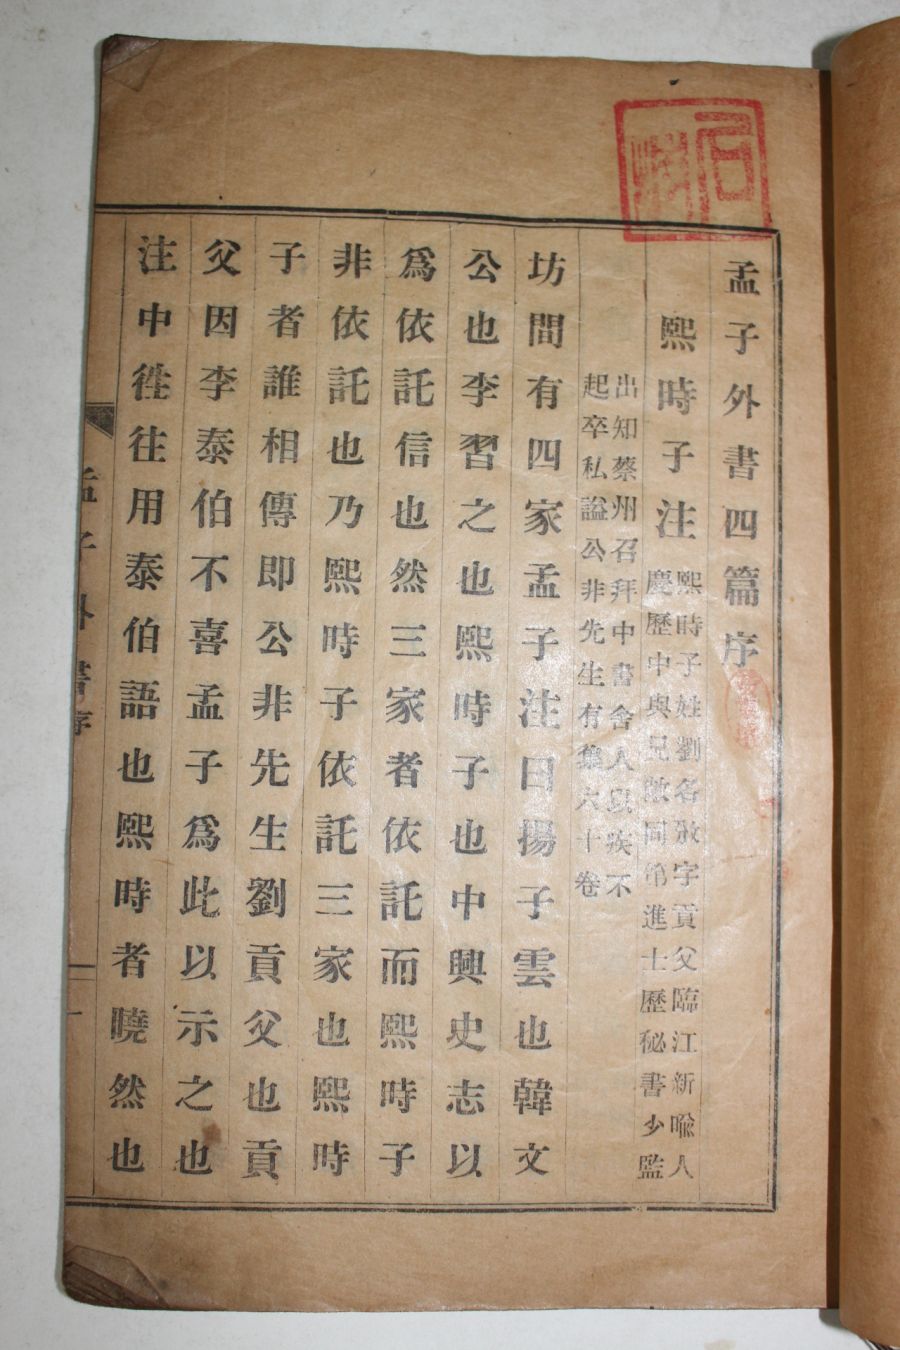 孟子外書四篇序
熙時子注
熙時子姓劉名攽字貢父臨江新喩人
慶歷中與兄敞同第進士歷秘書少監
出知蔡州召拜中書舍人以疾不
起卒私謚公非先生有集六十卷
坊間有四家孟子注曰揚子雲也韓文
公也李習之也熙時子也中興史志以
爲依託信也然三家者依託而熙時子
非依託也乃熙時子依託三家也熙時
子者誰相傳即公非先生劉貢父也貢
父因李泰伯不喜孟子爲此以示之也
注中徃往用泰伯語也熙時者曉然也
孟子外書序
一